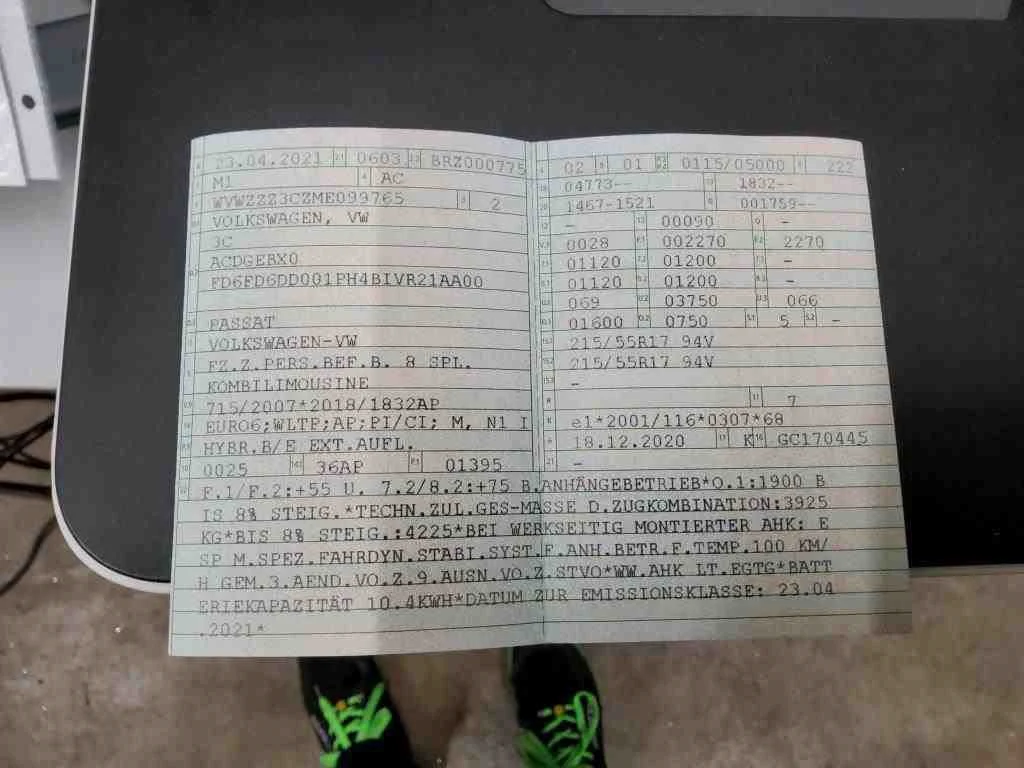 23.04.2021 0603 BRZ000775
M1 AC
WVWZZZ3CZME099765 2
VOLKSWAGEN, VW
3C
ACDGEBX0
FD6FD6DD001PH4BIVR21AA00
PASSAT
VOLKSWAGEN-VW
FZ.Z.PERS.BEF.B. 8 SPL.
KOMBILIMOUSINE
715/2007*2018/1832AP
EURO6;WLTP;AP;PI/CI; M, N1 I
HYBR.B/E EXT.AUFL.
0025 36AP 01395
02 01 0115/05000 222
04773-- 1832--
1467-1521 001759--
- 00090 -
0028 002270 2270
01120 01200 -
01120 01200 -
069 03750 066
01600 0750 5 -
215/55R17 94V
215/55R17 94V
-
7
e1*2001/116*0307*68
18.12.2020 K GC170445
-
F.1/F.2:+55 U. 7.2/8.2:+75 B.ANHÄNGEBETRIEB*O.1:1900 B
IS 8% STEIG.*TECHN.ZUL.GES-MASSE D.ZUGKOMBINATION:3925
KG*BIS 8% STEIG.:4225*BEI WERKSEITIG MONTIERTER AHK: E
SP M.SPEZ.FAHRDYN.STABI.SYST.F.ANH.BETR.F.TEMP.100 KM/
H GEM.3.AEND.VO.Z.9.AUSN.VO.Z.STVO*WW.AHK LT.EGTG*BATT
ERIEKAPAZITÄT 10.4KWH*DATUM ZUR EMISSIONSKLASSE: 23.04
.2021*